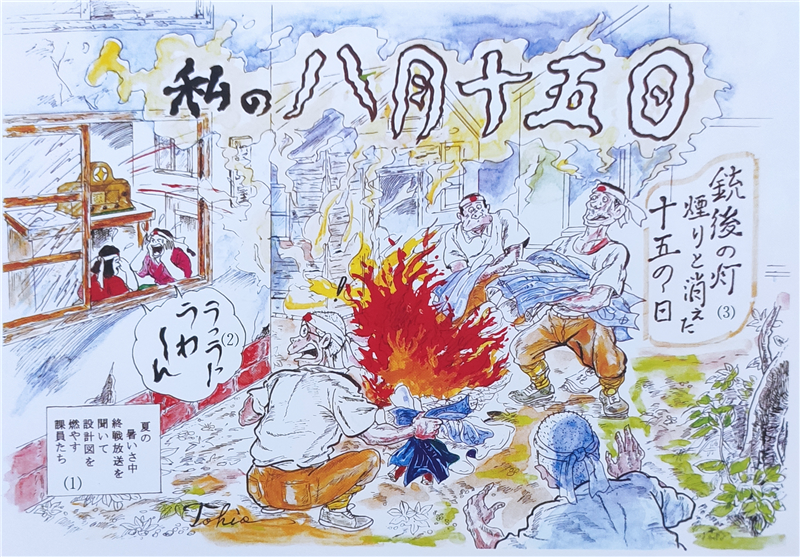 私の八月十五日
銃後の灯
(3)
煙りと消えた
十五の日
(2)
うわ〜ん
夏の
暑いさ中
終戦放送を
聞いて
設計図を
燃やす
課員たち
(1)